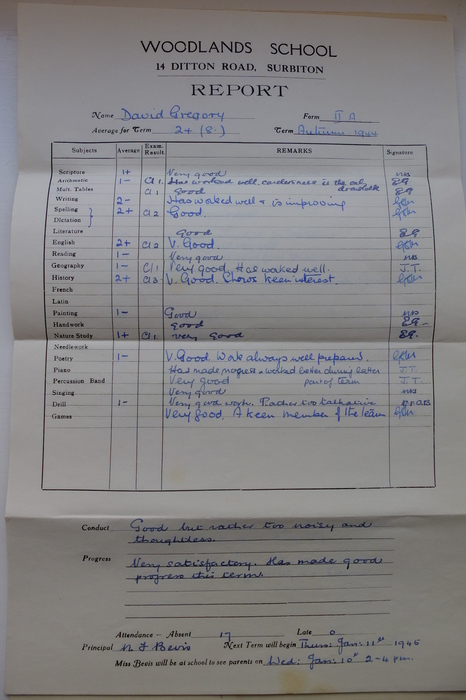 WOODLANDS SCHOOL
14 DITTON ROAD, SURBITON
REPORT
Name David Gregory Form II A
Average for Term 2+ (8) Term Autumn 1944
Subjects Average Exam. Result. REMARKS Signature
Scripture 1+ Very good
Arithmetic 1- Cl 1. Has worked well, carelessness is the only drawback
Mult. Tables Cl 1 Good
Writing 2- Has worked well & is improving
Spelling 2+ Cl 2 Good.
Dictation
Literature Good
English 2+ Cl 2 V. Good.
Reading 1- Very good
Geography 1- Cl 1 Very good. Has worked well. J.T.
History 2+ Cl 3 V. Good. Shows keen interest.
French
Latin
Painting 1- Good
Handwork Good
Nature Study 1+ Cl 1 Very Good
Needlework
Poetry 1- V. Good. Work always well prepared.
Piano Has made progress & worked better during latter J.T.
Percussion Band Very good part of term J.T.
Singing Very good
Drill 1- Very good work. Rather too talkative
Games Very good. A keen member of the team
Conduct Good but rather too noisy and
thoughtless.
Progress Very satisfactory. Has made good
progress this term.
Attendance – Absent 17 Late 0
Principal M. F. Bevis Next Term will begin Thurs: Jan: 11th 1945
Miss Bevis will be at school to see parents on Wed: Jan: 10th 2-4 pm.